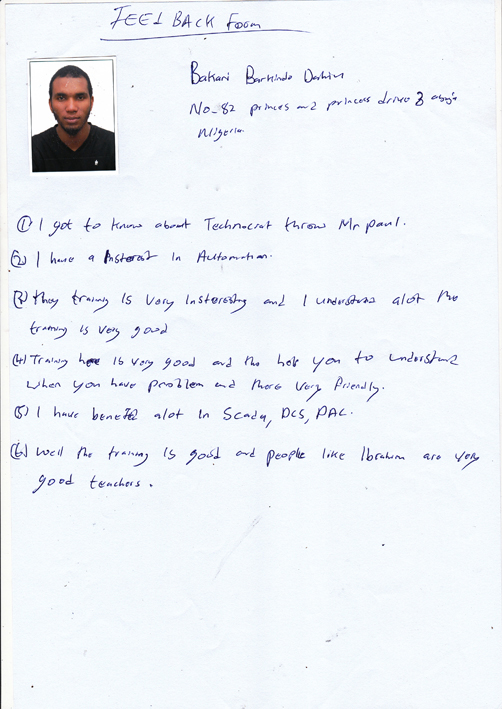 FEEDBACK Form
Bakari Barkindo
No-82 princes and princess drive 3 abuja
Nigeria.
① I got to know about Technocrat throw Mr paul.
② I have a Insterest in Automation.
③ they training is very insteresting and I understand alot the
training is very good
④ Training here is very good and the help you to understand
when you have problem and there very friendly.
⑤ I have benefit alot in Scada, DCS, PAC.
⑥ Well the training is good and people like Ibrahim are very
good teachers.